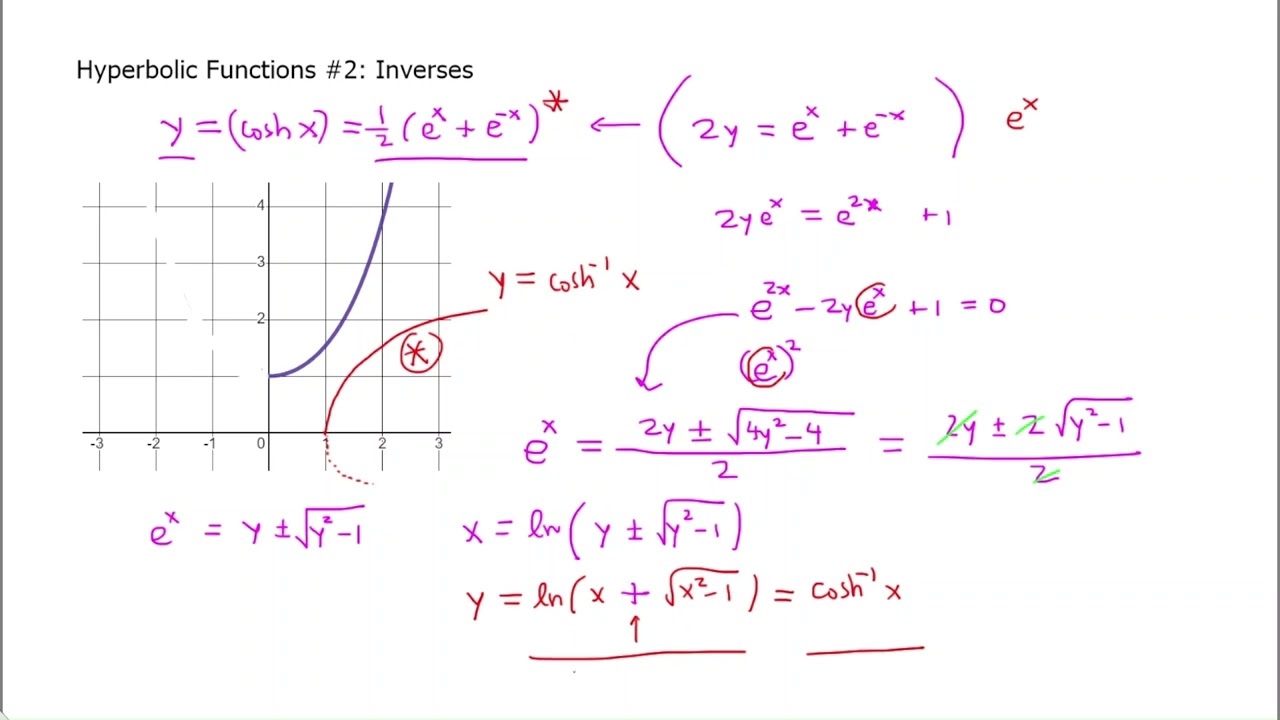 Hyperbolic Functions #2: Inverses
y = (cosh x) = ½ (eˣ + e⁻ˣ)* ← ( 2y = eˣ + e⁻ˣ ) eˣ
2yeˣ = e²ˣ + 1
4
3
2
-3 -2 -1 0 2 3
y = cosh⁻¹ x
*
e²ˣ - 2yeˣ + 1 = 0
(eˣ)²
eˣ = (2y ± √(4y²-4))/2 = (2y ± 2√(y²-1))/2
eˣ = y ± √(y²-1)
x = ln( y ± √(y²-1) )
y = ln( x + √(x²-1) ) = cosh⁻¹ x